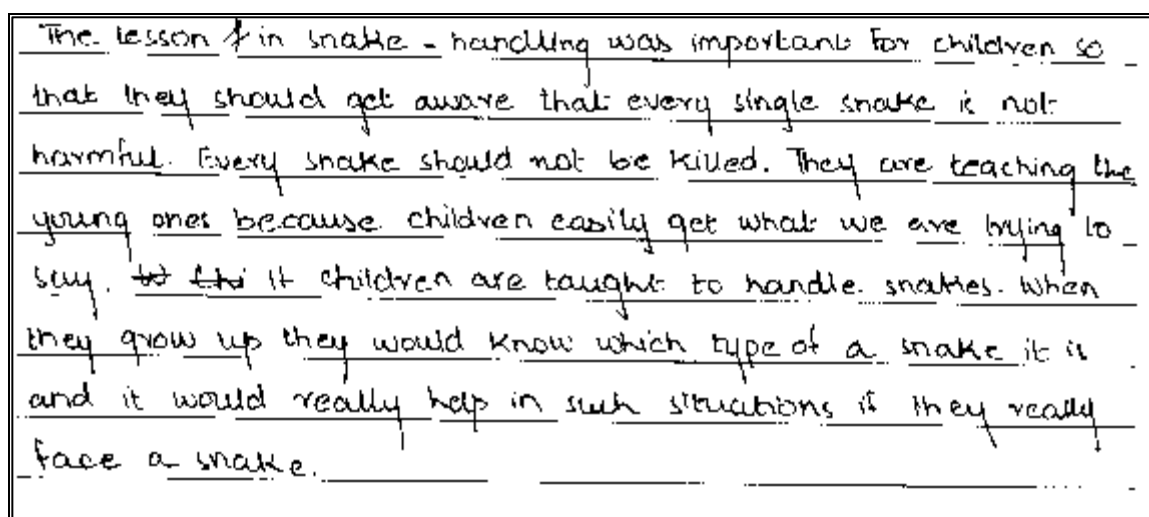 The lesson in snake - handling was important for children so
that they should get aware that every single snake is not
harmful. Every snake should not be killed. They are teaching the
young ones because children easily get what we are trying to
say. If children are taught to handle snakes. When
they grow up they would know which type of a snake it is
and it would really help in such situations if they really
face a snake.